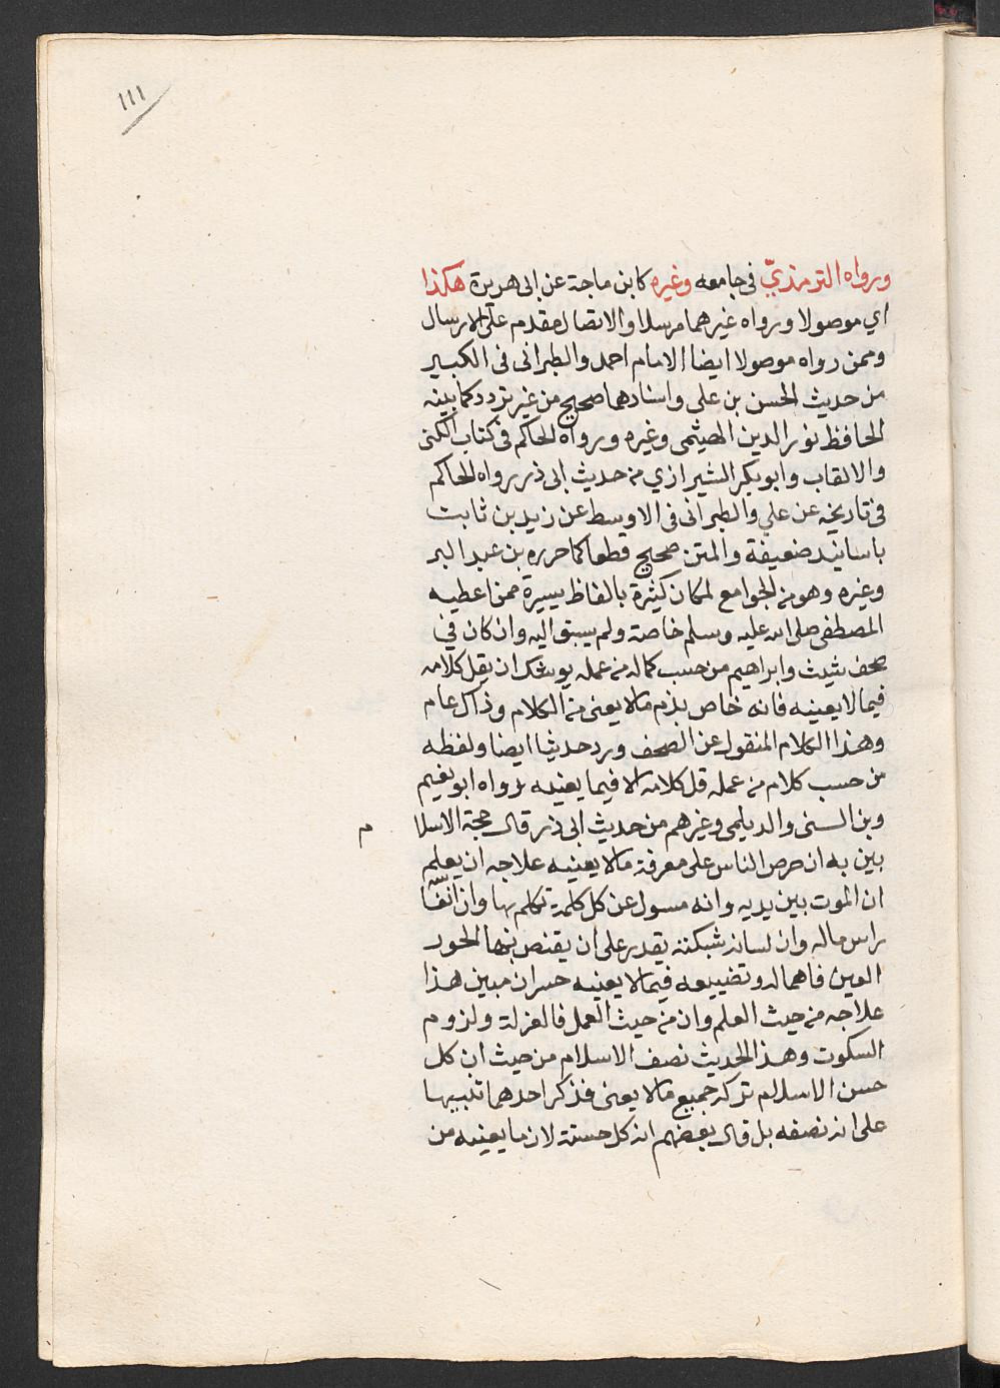 ١١١
ورواه الترمذيّ في جامعه وغيره كابن ماجة عن ابى هريرة هكذا
اي موصولا ورواه غيرهما مرسلا والاتصال مقدم على الارسال
وممن رواه موصولا ايضا الامام احمد والطبرانى فى الكبير
من حديث الحسن بن على واسنادهما صحيح من غير تردد كما بينه
الحافظ نور الدين الهيثمى وغيره ورواه الحاكم فى كتاب الكنى
والالقاب وابو بكر الشيرازي من حديث ابى ذر رواه الحاكم
فى تاريخه عن علي والطبرانى فى الاوسط عن زيد بن ثابت
باسانيد ضعيفة والمتن صحيح قطعا كما حرره بن عبد البر
وغيره وهو من الجوامع لمكان كثيرة بالفاظ يسيرة مما اعطيه
المصطفى صلى الله عليه وسلم خاصة ولم يسبق اليه وان كان في
صحف شيث وابراهيم من حسب كماله من عمله يوشك ان يقل كلامه
فيما لا يعينيه فانه خاص بذم ما لا يعنى من الكلام وذاك عام
وهذا الكلام المنقول عن الصحف ورد حديثا ايضا ولفظه
من حسب كلام من عمله قل كلامه الا فيما يعنيه رواه ابو نعيم
وبن السنى والديلمى وغيرهم من حديث ابى ذر قال حجة الاسلا م
بين به ان حرص الناس على معرفة ما لا يعينيه علاجه ان يعلم
ان الموت بين يديه وانه مسول عن كل كلمة تكلم بها وان انفا
راس ماله وان لسانه شبكته يقدر على ان يقنص بها الحور
العين فاهماله وتضييعه فيما لا يعينيه خسران مبين هذا
علاجه من حيث العلم وان من حيث العمل فالعزلة ولزوم
السكوت وهذا الحديث نصف الاسلام من حيث ان كل
حسن الاسلام تركه جميع ما لا يعنى فذكر احدهما تنبيها
على انه نصفه بل قال بعضهم انه كل حسنة لان ما يعينيه من